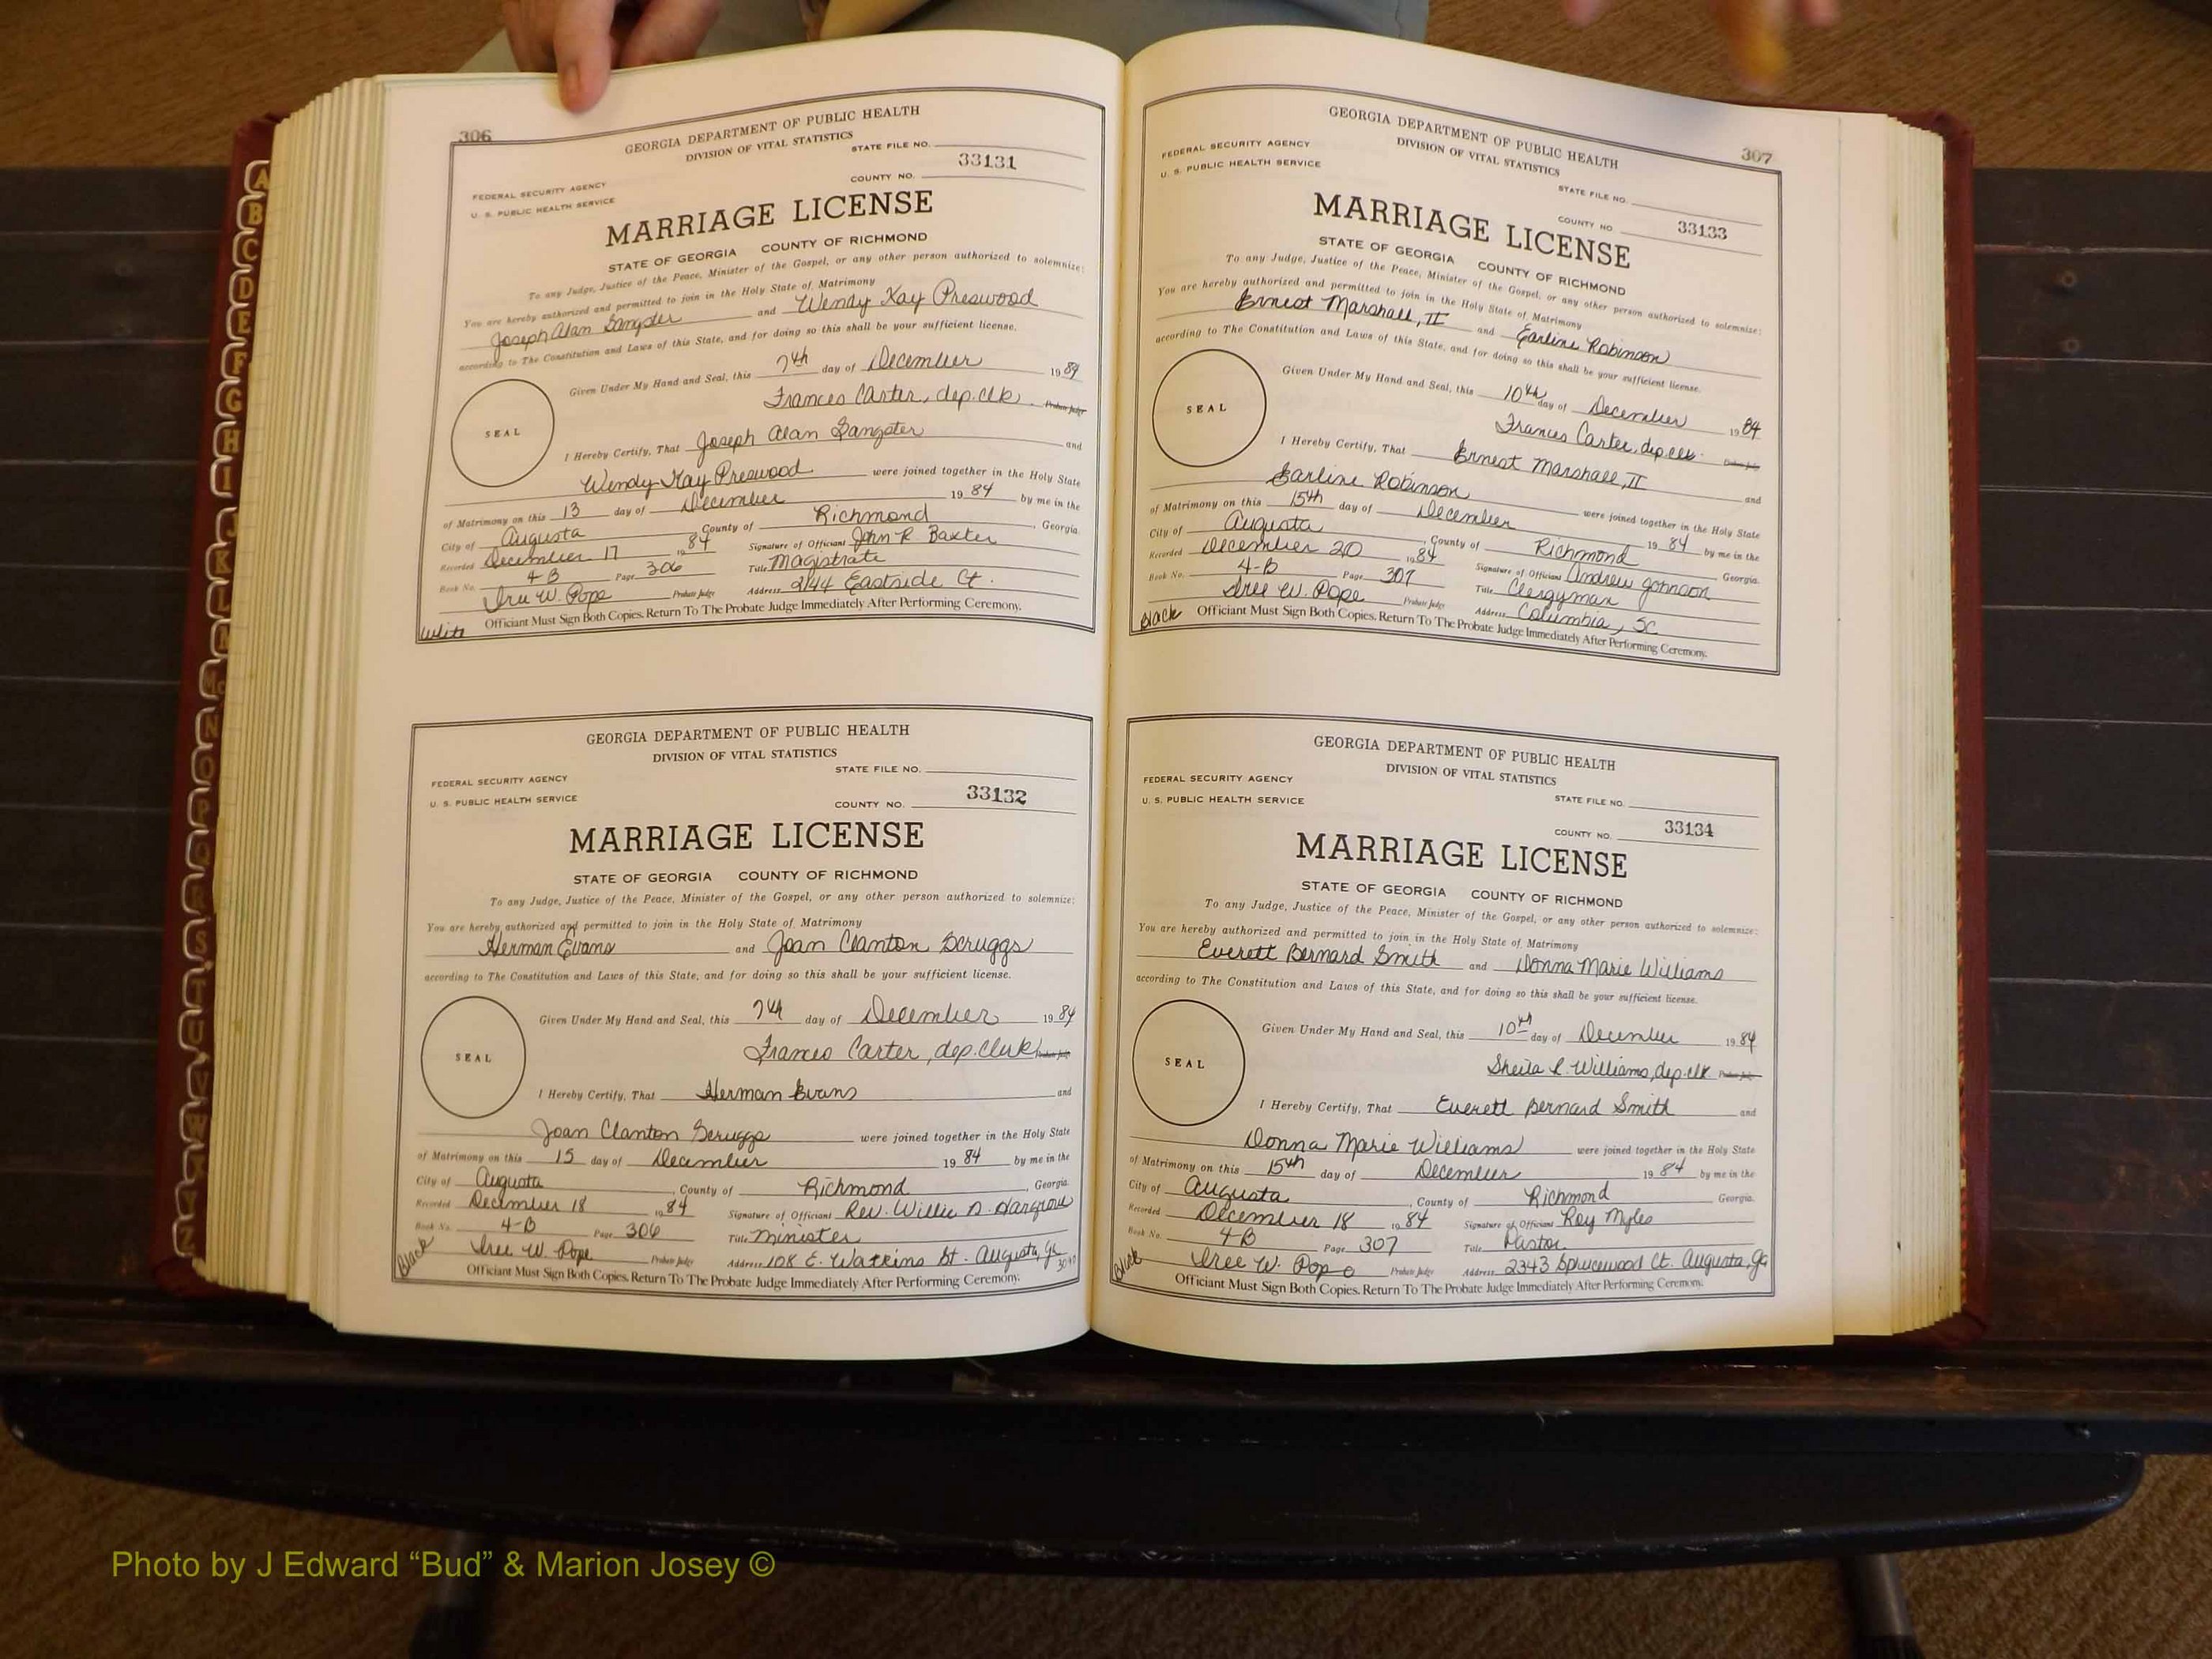 306
GEORGIA DEPARTMENT OF PUBLIC HEALTH
DIVISION OF VITAL STATISTICS
STATE FILE NO.
FEDERAL SECURITY AGENCY
U. S. PUBLIC HEALTH SERVICE
COUNTY NO. 33131
MARRIAGE LICENSE
STATE OF GEORGIA COUNTY OF RICHMOND
To any Judge, Justice of the Peace, Minister of the Gospel, or any other person authorized to solemnize:
You are hereby authorized and permitted to join in the Holy State of Matrimony
Joseph Alan Sangster and Wendy Kay Preswood
according to The Constitution and Laws of this State, and for doing so this shall be your sufficient license.
Given Under My Hand and Seal, this 7th day of December 1984
Frances Carter, dep. clk. Probate Judge
SEAL
I Hereby Certify, That Joseph Alan Sangster and
Wendy Kay Preswood were joined together in the Holy State
of Matrimony on this 13 day of December 1984 by me in the
City of Augusta County of Richmond, Georgia.
Recorded December 17 1984 Signature of Officiant John R. Baxter
Book No. 4-B Page 306 Title Magistrate
W. Pope Probate Judge Address 2144 Eastside Ct.
White Officiant Must Sign Both Copies. Return To The Probate Judge Immediately After Performing Ceremony.
GEORGIA DEPARTMENT OF PUBLIC HEALTH
DIVISION OF VITAL STATISTICS
STATE FILE NO.
FEDERAL SECURITY AGENCY
U. S. PUBLIC HEALTH SERVICE
COUNTY NO. 33132
MARRIAGE LICENSE
STATE OF GEORGIA COUNTY OF RICHMOND
To any Judge, Justice of the Peace, Minister of the Gospel, or any other person authorized to solemnize:
You are hereby authorized and permitted to join in the Holy State of Matrimony
Herman Evans and Joan Clanton Scruggs
according to The Constitution and Laws of this State, and for doing so this shall be your sufficient license.
Given Under My Hand and Seal, this 7th day of December 1984
Frances Carter, dep. Clerk Probate Judge
SEAL
I Hereby Certify, That Herman Evans and
Joan Clanton Scruggs were joined together in the Holy State
of Matrimony on this 15 day of December 1984 by me in the
City of Augusta, County of Richmond, Georgia.
Recorded December 18 1984 Signature of Officiant Rev. Willie D. Hargrove
Book No. 4-B Page 306 Title Minister
W. Pope Probate Judge Address 108 E. Watkins St. Augusta, Ga
Black Officiant Must Sign Both Copies. Return To The Probate Judge Immediately After Performing Ceremony.
307
GEORGIA DEPARTMENT OF PUBLIC HEALTH
DIVISION OF VITAL STATISTICS
FEDERAL SECURITY AGENCY
U. S. PUBLIC HEALTH SERVICE
STATE FILE NO.
COUNTY NO. 33133
MARRIAGE LICENSE
STATE OF GEORGIA COUNTY OF RICHMOND
To any Judge, Justice of the Peace, Minister of the Gospel, or any other person authorized to solemnize:
You are hereby authorized and permitted to join in the Holy State of Matrimony
Ernest Marshall, II and Earline Robinson
according to The Constitution and Laws of this State, and for doing so this shall be your sufficient license.
Given Under My Hand and Seal, this 10th day of December 1984
Frances Carter, dep. clk. Probate Judge
SEAL
I Hereby Certify, That Ernest Marshall, II and
Earline Robinson were joined together in the Holy State
of Matrimony on this 15th day of December 1984 by me in the
City of Augusta, County of Richmond Georgia.
Recorded December 20 1984 Signature of Officiant Andrew Johnson
Book No. 4-B Page 307 Title Clergyman
W. Pope Probate Judge Address Columbia, SC
Black Officiant Must Sign Both Copies. Return To The Probate Judge Immediately After Performing Ceremony.
GEORGIA DEPARTMENT OF PUBLIC HEALTH
DIVISION OF VITAL STATISTICS
FEDERAL SECURITY AGENCY
U. S. PUBLIC HEALTH SERVICE
STATE FILE NO.
COUNTY NO. 33134
MARRIAGE LICENSE
STATE OF GEORGIA COUNTY OF RICHMOND
To any Judge, Justice of the Peace, Minister of the Gospel, or any other person authorized to solemnize:
You are hereby authorized and permitted to join in the Holy State of Matrimony
Everett Bernard Smith and Donna Marie Williams
according to The Constitution and Laws of this State, and for doing so this shall be your sufficient license.
Given Under My Hand and Seal, this 10th day of December 1984
Sheila R. Williams, dep. clk. Probate Judge
SEAL
I Hereby Certify, That Everett Bernard Smith and
Donna Marie Williams were joined together in the Holy State
of Matrimony on this 15th day of December 1984 by me in the
City of Augusta, County of Richmond Georgia.
Recorded December 18 1984 Signature of Officiant Roy Myles
Book No. 4B Page 307 Title Pastor
W. Pope Probate Judge Address 2343 Sprucewood Ct. Augusta, Ga
Black Officiant Must Sign Both Copies. Return To The Probate Judge Immediately After Performing Ceremony.
A
B
C
D
E
F
G
H
I
J
K
L
M
N
O
P
Q
R
S
T
U
V
W
Y
Z
Photo by J Edward “Bud” & Marion Josey ©